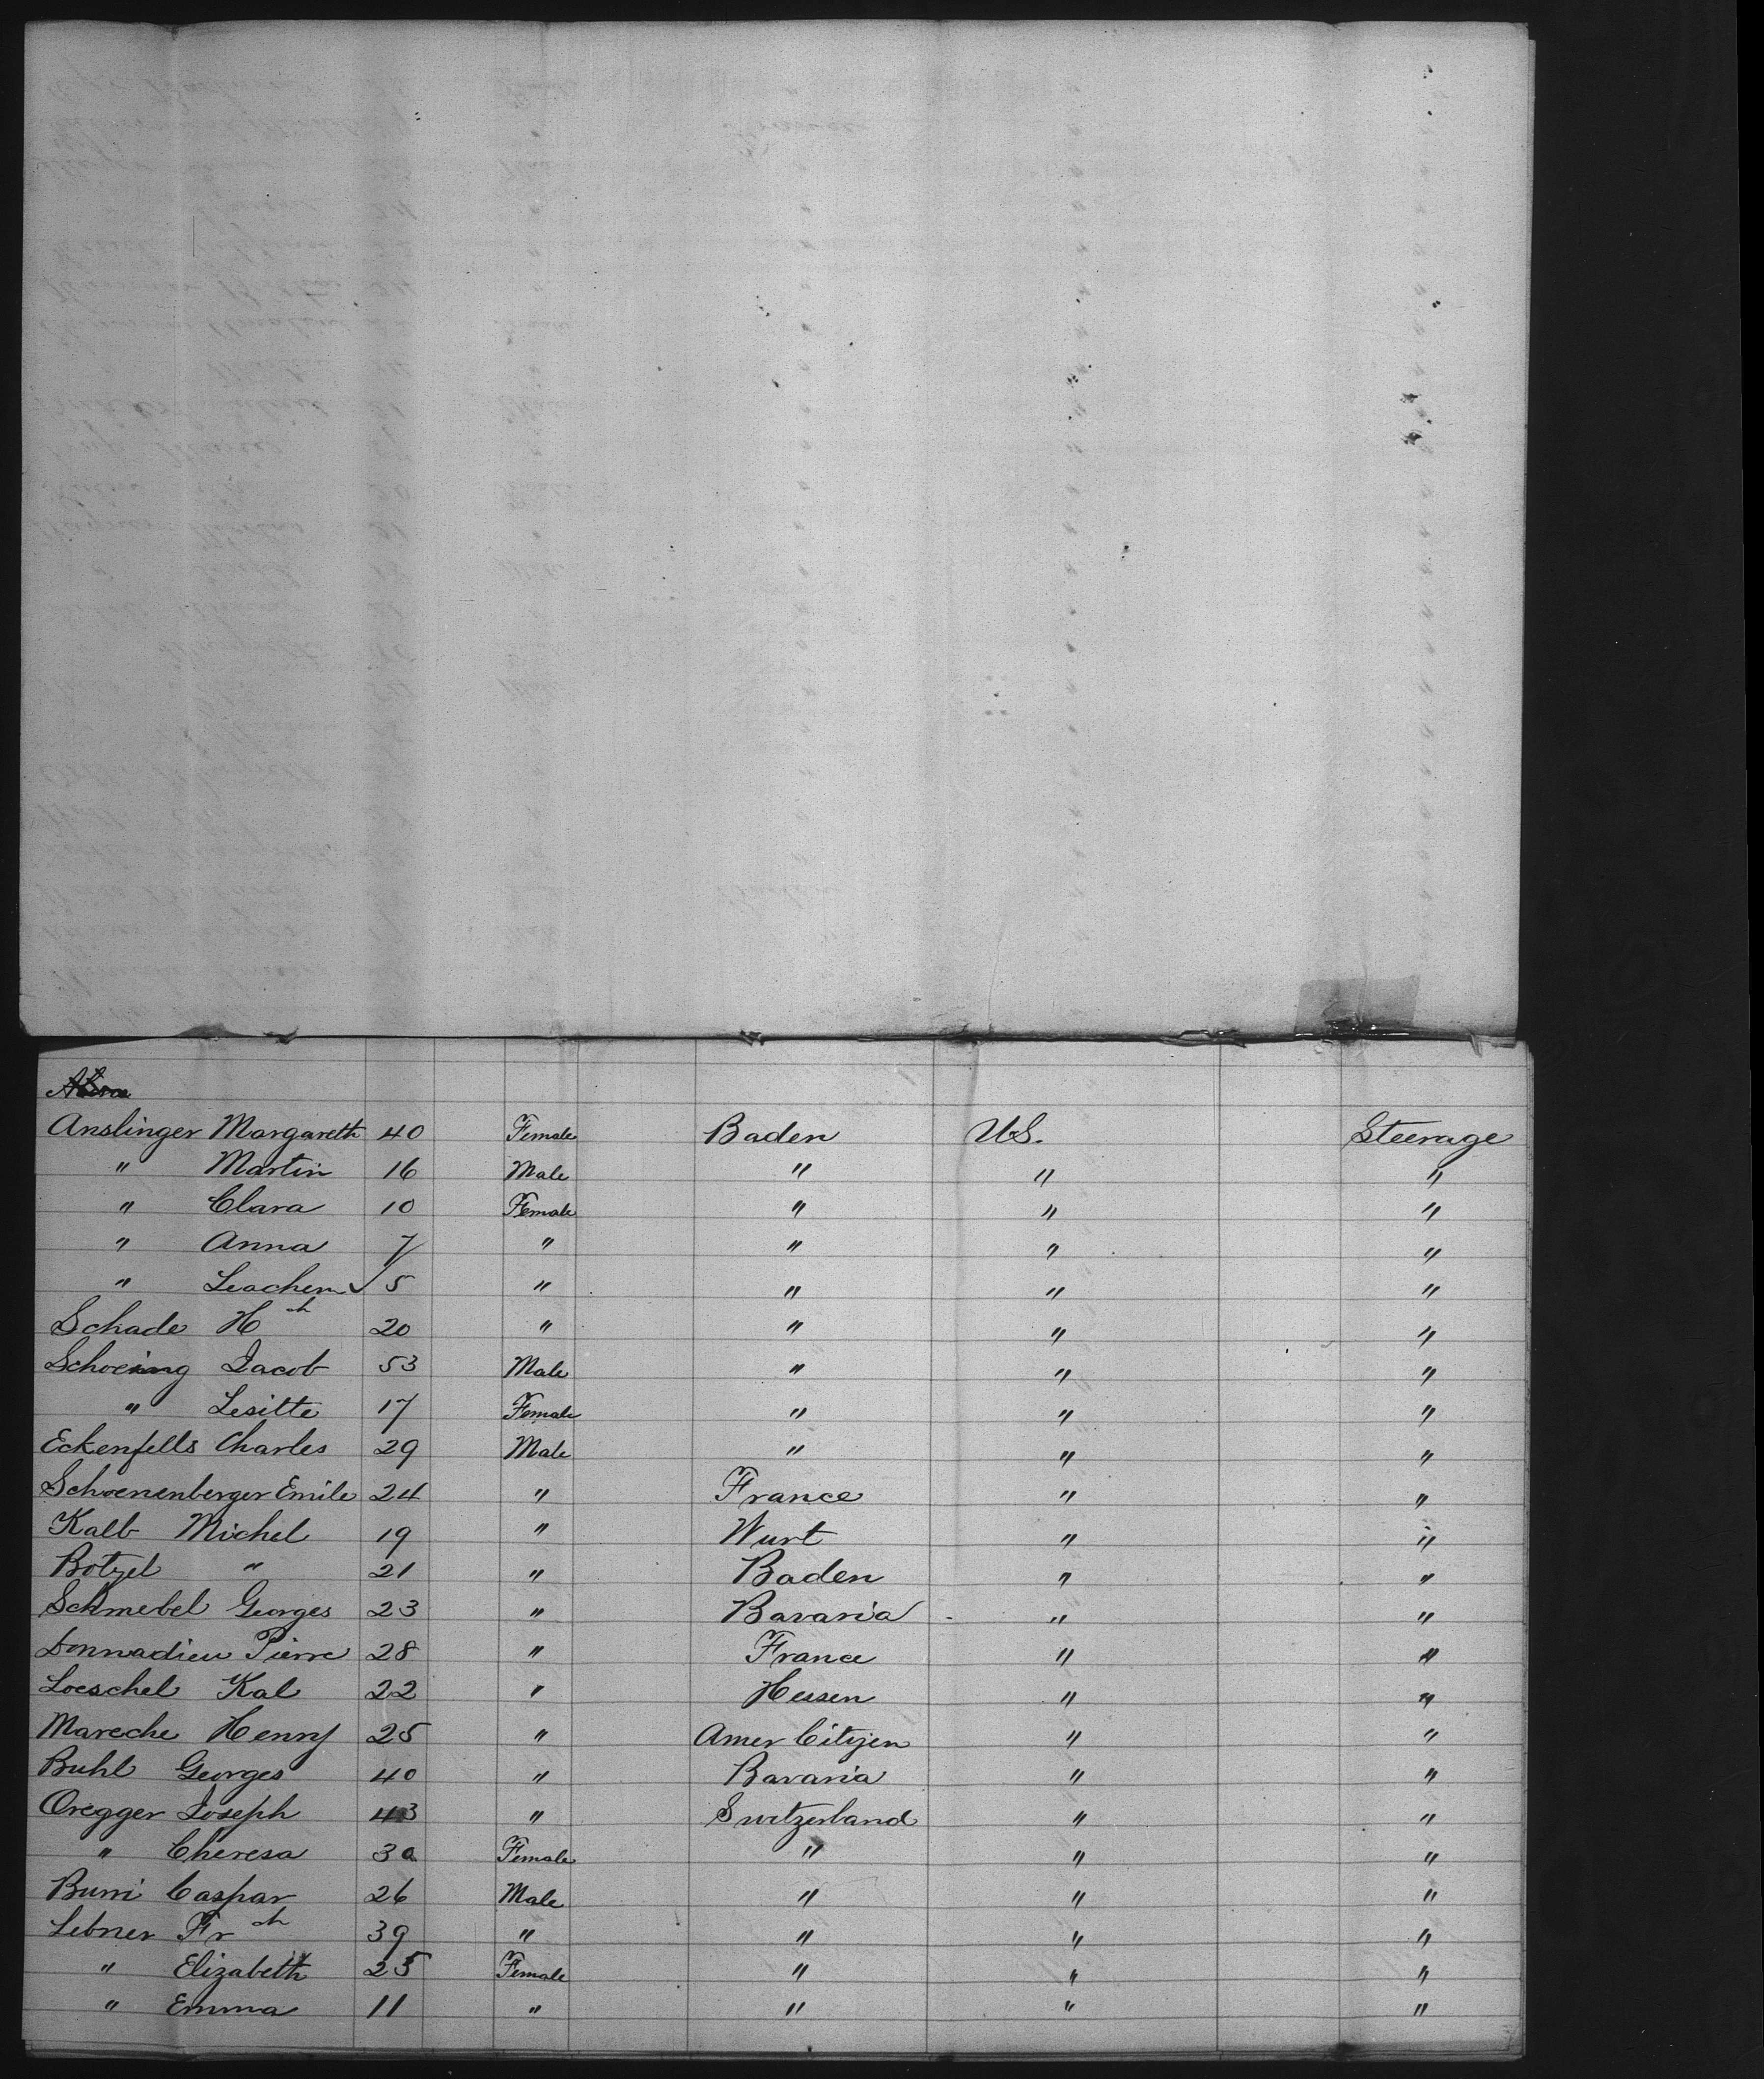 Anslinger Margareth 40 Female Baden U.S. Steerage
" Martin 16 Male " " "
" Clara 10 Female " " "
" Anna 7 " " " "
" Leachem 5 " " " "
Schade Hch 20 " " " "
Schoeing Jacob 53 Male " " "
" Lisitte 17 Female " " "
Eckenfells Charles 29 Male " " "
Schoenenberger Emile 24 " France " "
Kalb Michel 19 " Wurt " "
Botzel " 21 " Baden " "
Schmebel Georges 23 " Bavaria " "
Donnadieu Pierre 28 " France " "
Loeschel Kal 22 " Hessen " "
Mareche Henry 25 " Amer Citizen " "
Buhl Georges 40 " Bavaria " "
Oregger Joseph 43 " Switzerland " "
" Cheresa 30 Female " " "
Burri Caspar 26 Male " " "
Lebner Frch 39 " " " "
" Elizabeth 25 Female " " "
" Emma 11 " " " "